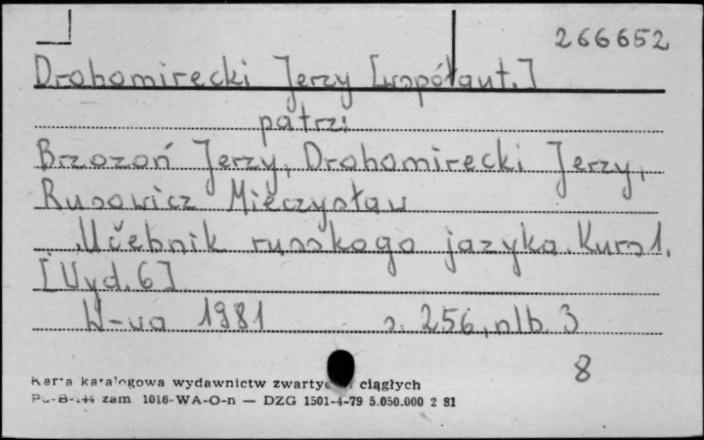 266652
Drohomirecki Jerzy [współaut.]
patrz:
Brzozoń Jerzy, Drohomirecki Jerzy,
Rusowicz Mieczysław
Učebnik russkogo jazyka. Kurs 1.
[Wyd. 6]
W-wa 1981 s. 256, nlb. 3
8
Karta katalogowa wydawnictw zwartych i ciągłych
Pu-B-144 zam. 1016-WA-O-n — DZG 1501-4-79 5.050.000 2 81